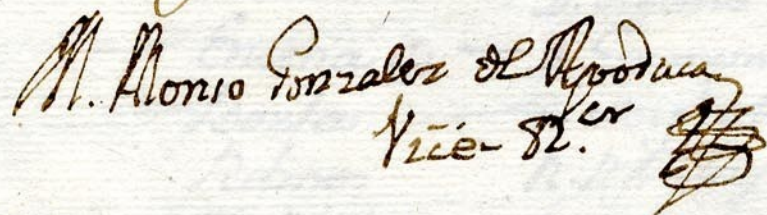 M. Alonso Gonzalez de Apodaca
Vice-Rr.or